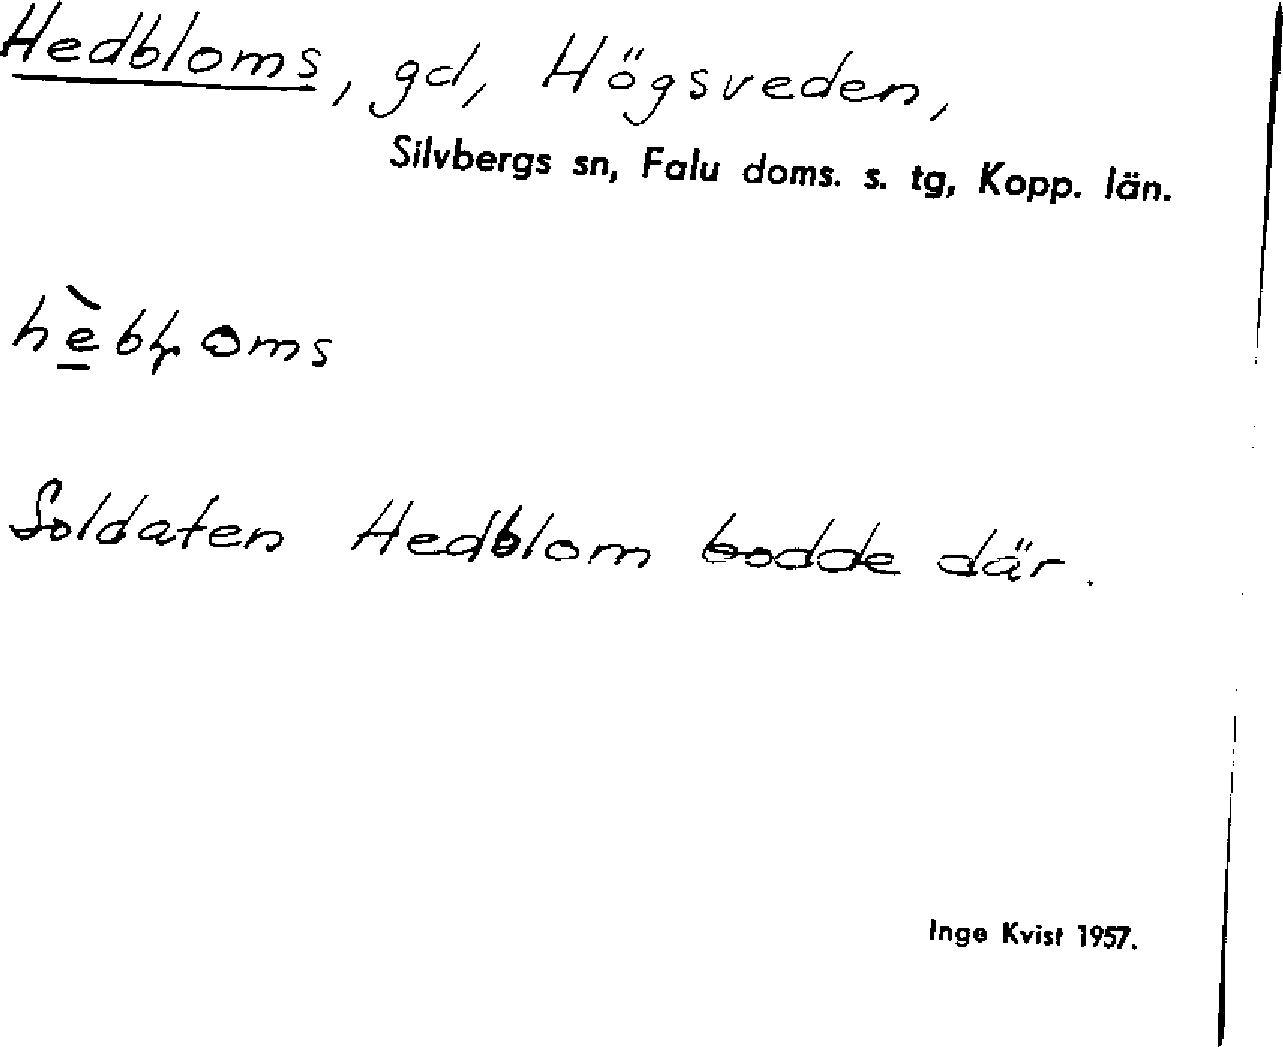 Hedbloms, gd, Högsveden,
Silvbergs sn, Falu doms. s. tg, Kopp. län.
Soldaten Hedblom bodde där.
Inge Kvist 1957.